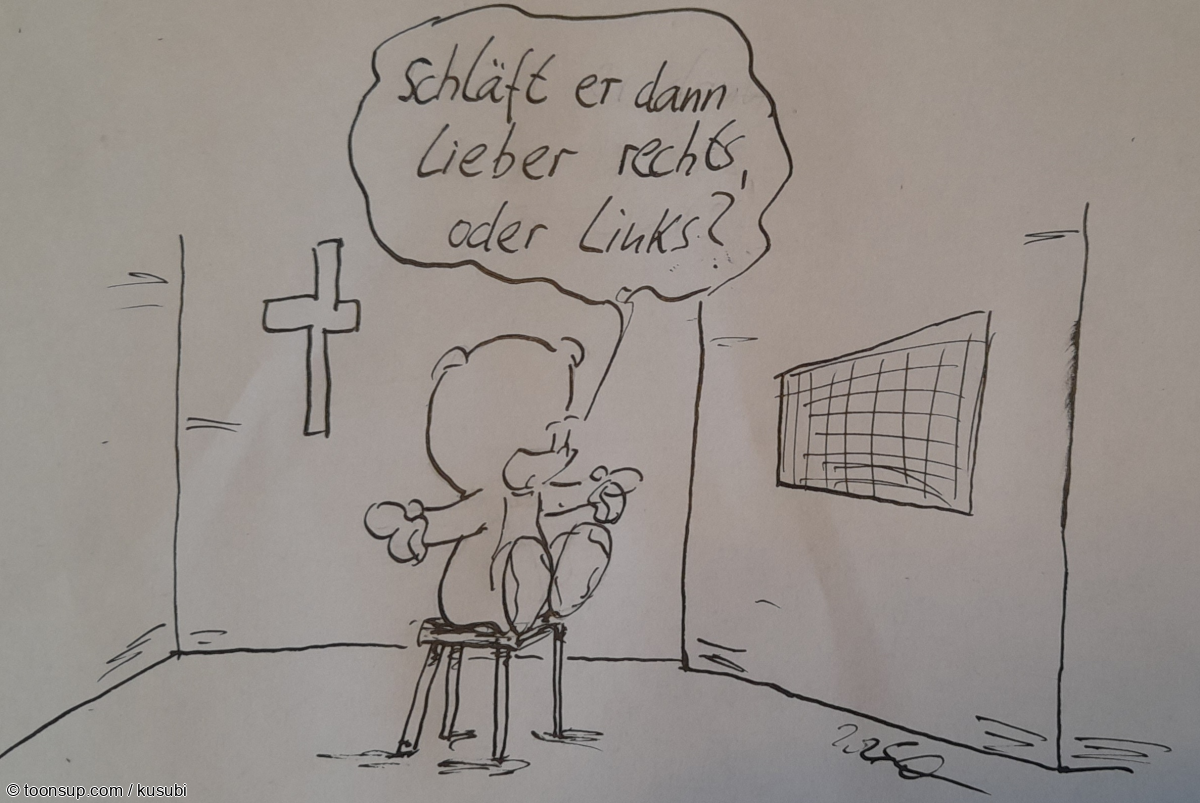 Schläft er dann
lieber rechts,
oder links?
© toonsup.com / kusubi